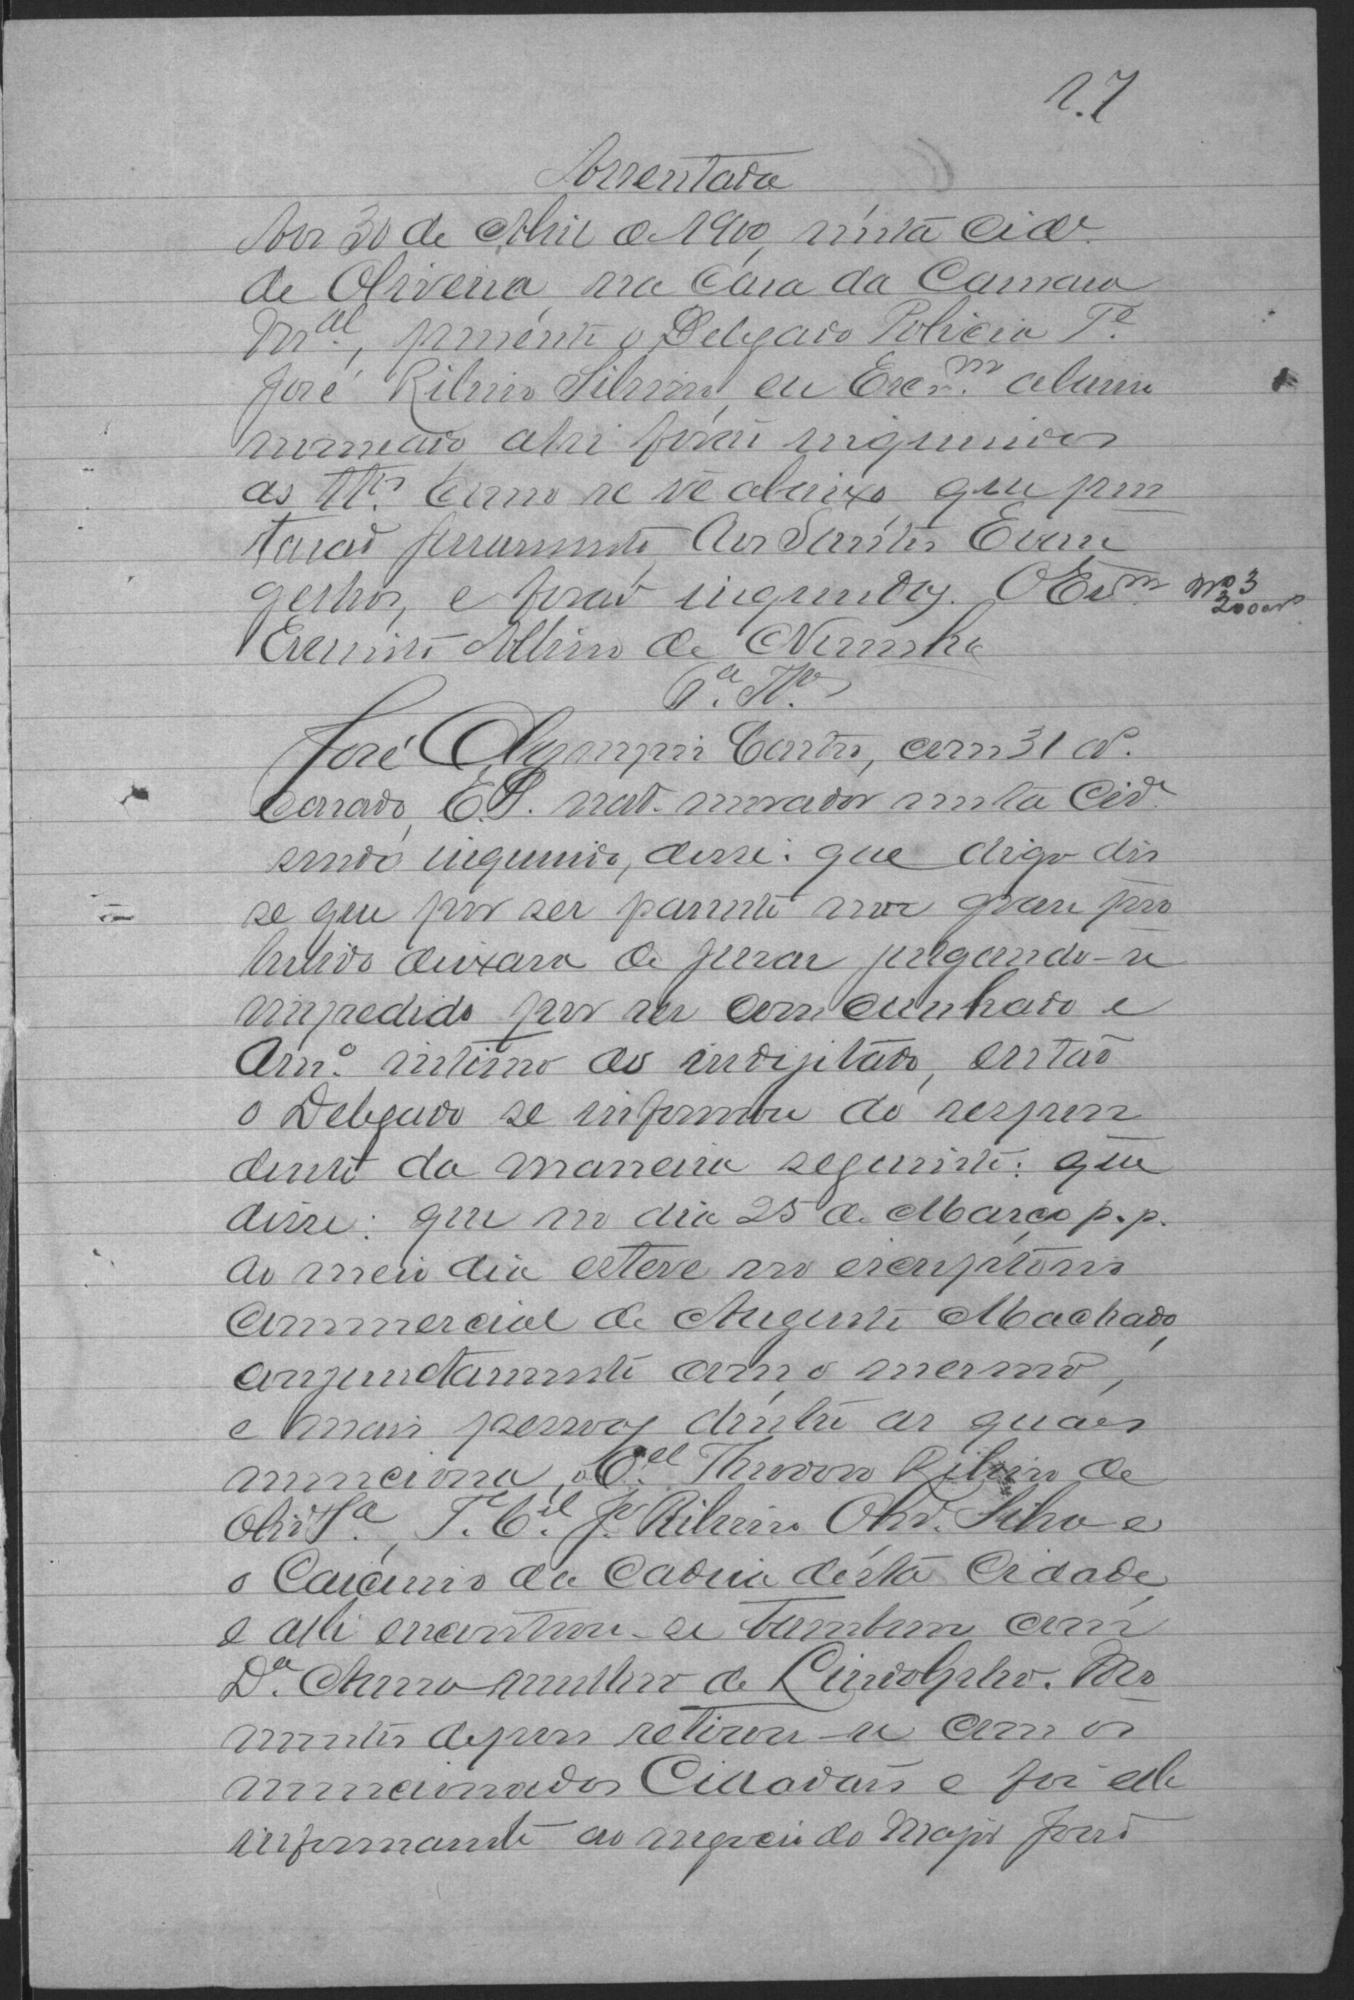 27
Assentada
Aos 30 de Abril de 1900, nesta Cidᵉ
de Oliveira, na Casa da Camara
Mᵃˡ, presente o Delegado Policia Tᵉ
José Ribeiro Silvino, eu Escᵐ abaixo
nomeado ahi forão inqueridos
as ttᵃˢ como se vê abaixo, que pres
tarão juramento Aos Santos Evan
gelhos, e forão inqueridos. O Escᵐ
Nº 3
Albino de Noronha
1ª Ttª
José Olympio Castro, com 31 aˢ.
Casado, E.P. nat. morador nesta Cidᵉ
sendo inquerido, disse: que digo dis
se que por ser parente nor grau pro
hibido deixara de jurar julgando-se
impedido por ser concunhado e
Amº intimo do indigitado, então
o Delegado se informou do respon
dente da maneira seguinte: que
disse: que no dia 25 de Março p.p.
ao meio dia esteve no escriptorio
Commercial de Augusto Machado,
conjunctamente com o mesmo,
e mais pessoas dentre as quaes
menciona, o Cᵉˡ Theodoro Ribeiro de
Olivʳᵃ, Tᵉ Cᵉˡ Jᵉ Ribeiro Olivʳᵃ Silva e
o Carcereiro da Cadeia desta Cidade,
e alli encontrou-se tambem com
Dª Anna mulher de Lindolpho. Mo
mentos depois retirou-se com os
mencionados Cidadãos e foi elle
informante ao negocio do Major João